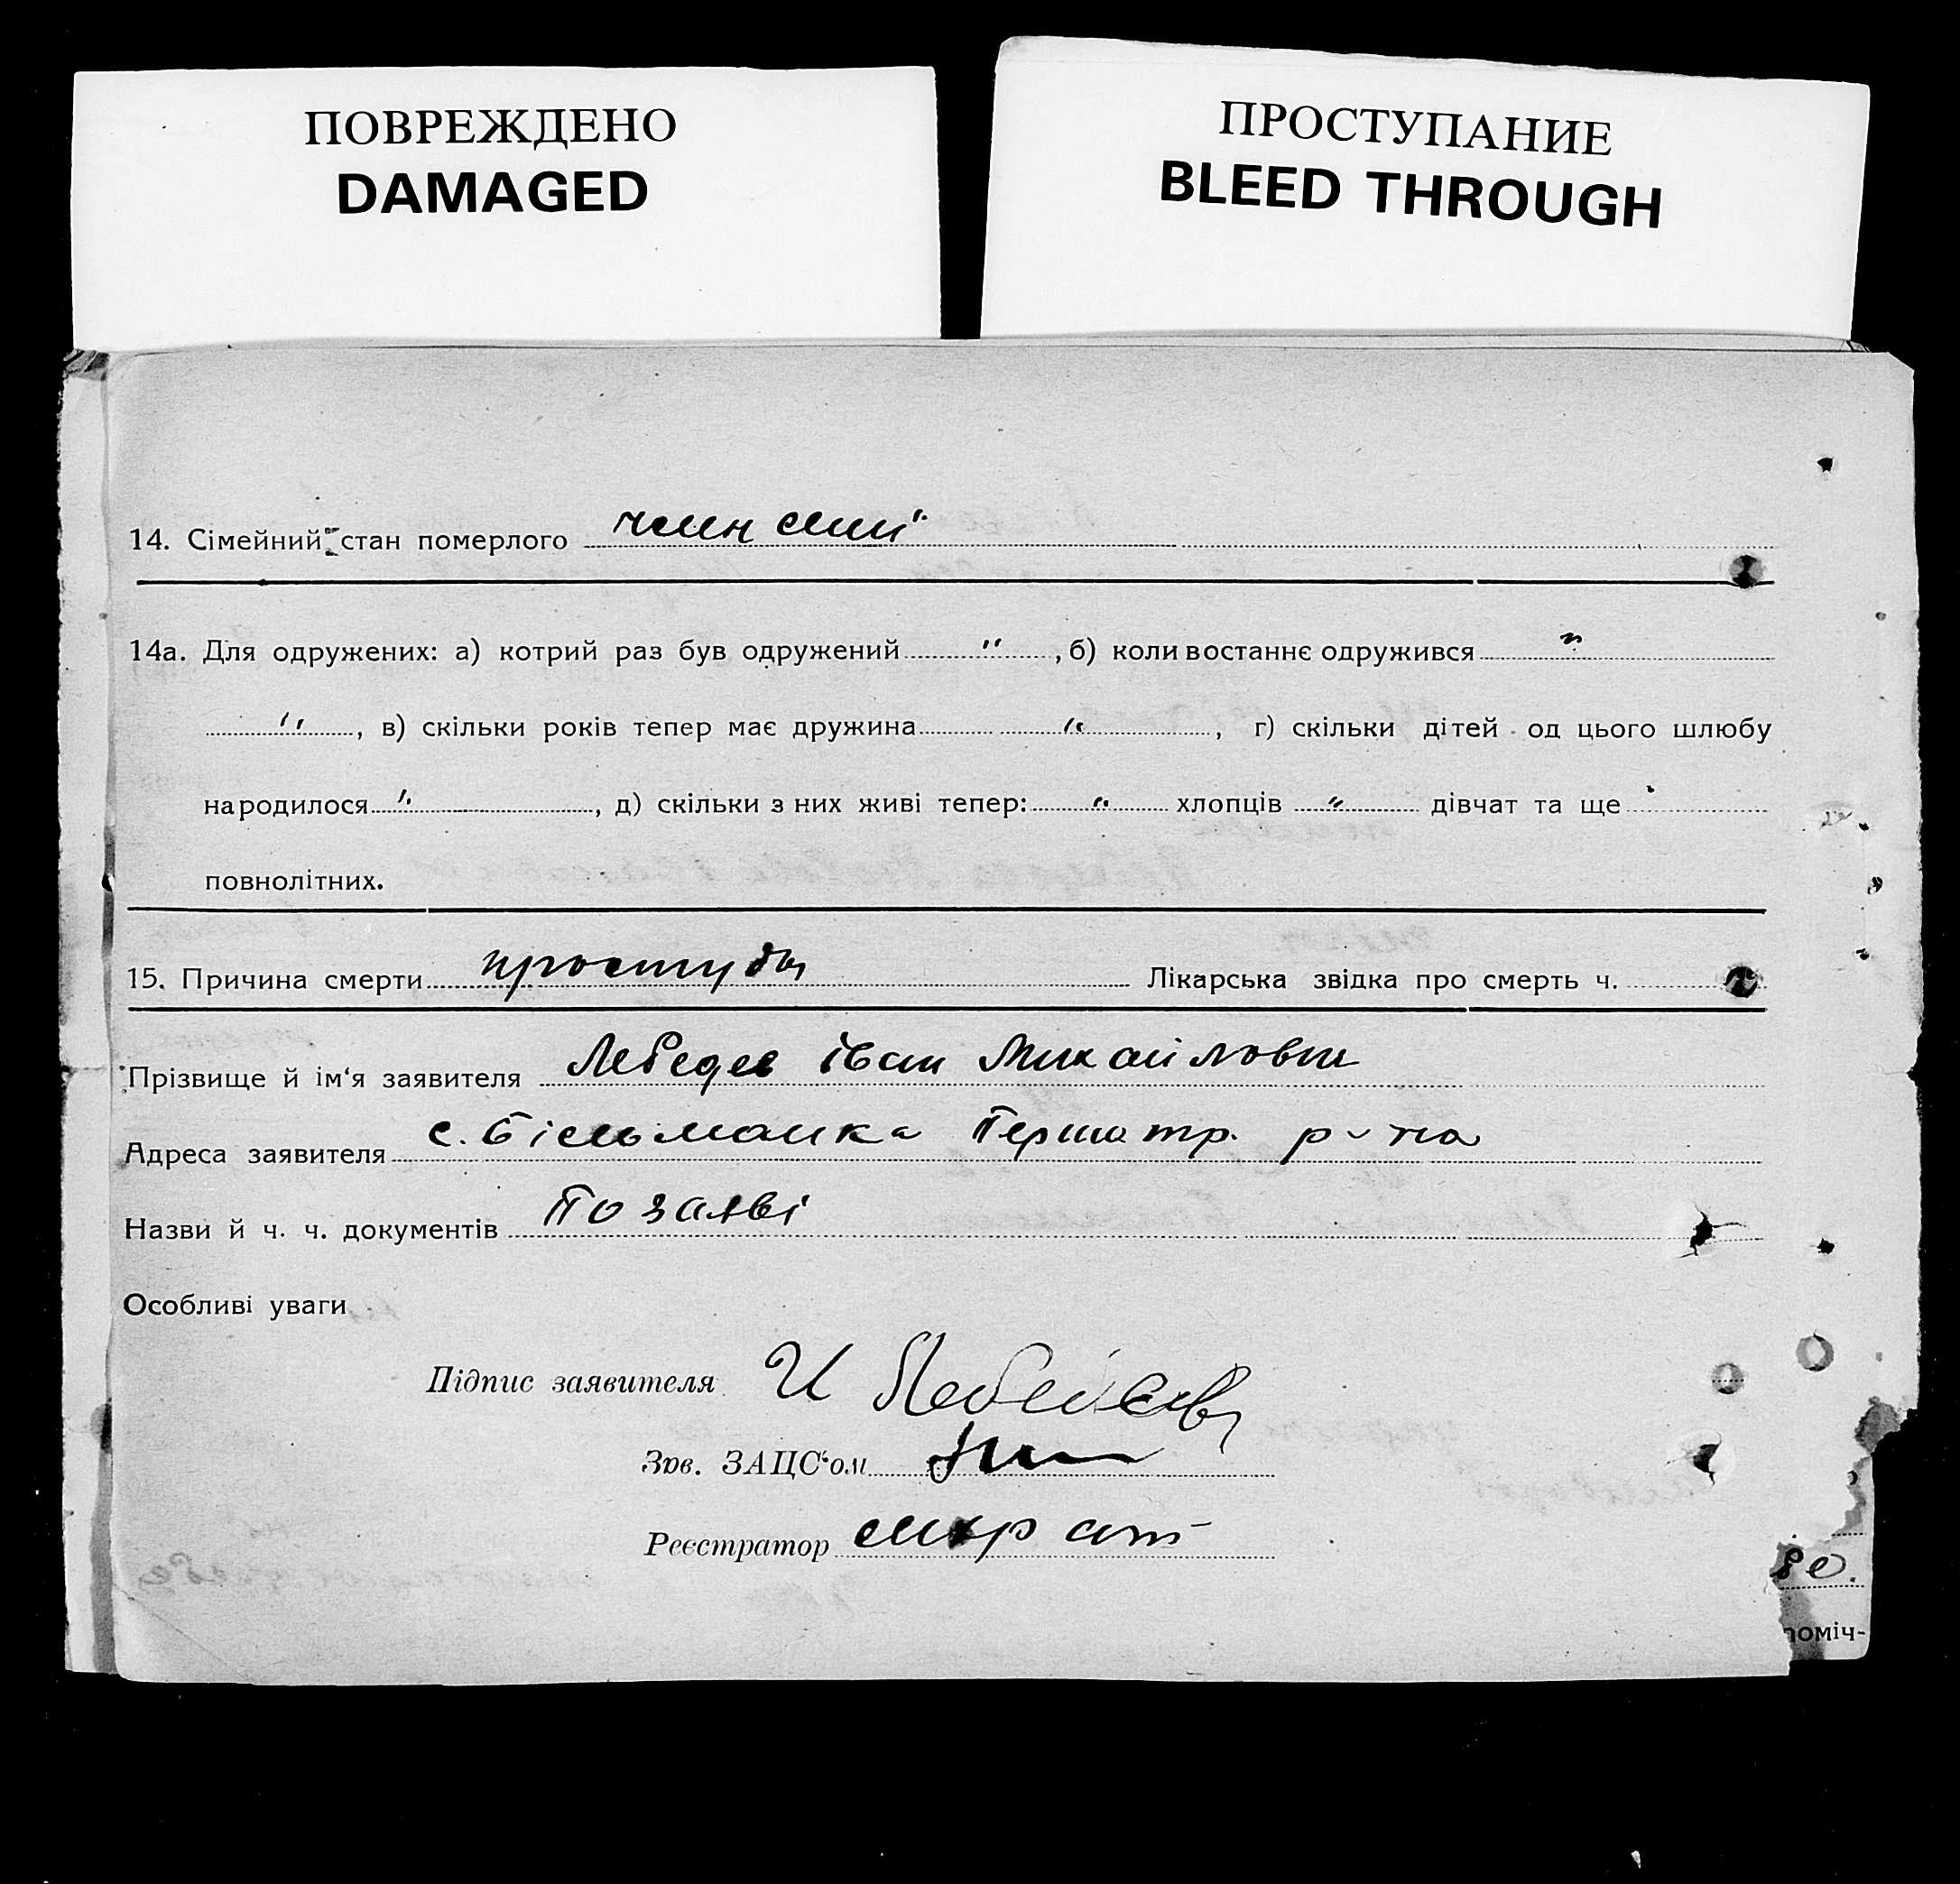 ПОВРЕЖДЕНО
DAMAGED
ПРОСТУПАНИЕ
BLEED THROUGH
14. Сімейний стан померлого
14а. Для одружених: а) котрий раз був одружений " , б) коли востаннє одружився "
" , в) скільки років тепер має дружина " , г) скільки дітей од цього шлюбу
народилося " , д) скільки з них живі тепер: " хлопців " дівчат та ще
повнолітних.
15. Причина смерти простуда Лікарська звідка про смерть ч.
Прізвище й ім'я заявителя Лебедев Іван Михайлович
Адреса заявителя с. Більманка р-на
Назви й ч. ч. документів По заяві
Особливі уваги
Підпис заявителя И Лебедєв
Зав. ЗАЦС'ом
Реєстратор
80.
поміч-